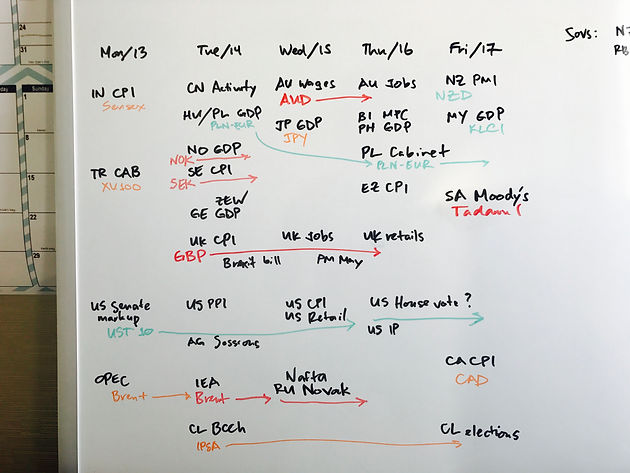 Sunday
1
8
15
22
29
Sovs: NZ
RB
Mon/13 Tue/14 Wed/15 Thu/16 Fri/17
IN CPI CN Activity AU Wages AU Jobs NZ PMI
Sensex AUD NZD
HU/PL GDP JP GDP BI MPC MY GDP
PLN-EUR JPY PH GDP KLCI
NO GDP PL Cabinet
NOK PLN-EUR
TR CAB SE CPI EZ CPI
XU100 SEK
ZEW SA Moody's
GE GDP Tadawul
UK CPI UK Jobs UK retails
GBP Brexit bill PM May
US Senate US PPI US CPI US House vote?
markup US Retail
UST 10 US IP
AG Sessions
CA CPI
CAD
OPEC IEA Nafta
Brent Brent RU Novak
CL BCch CL elections
IPSA